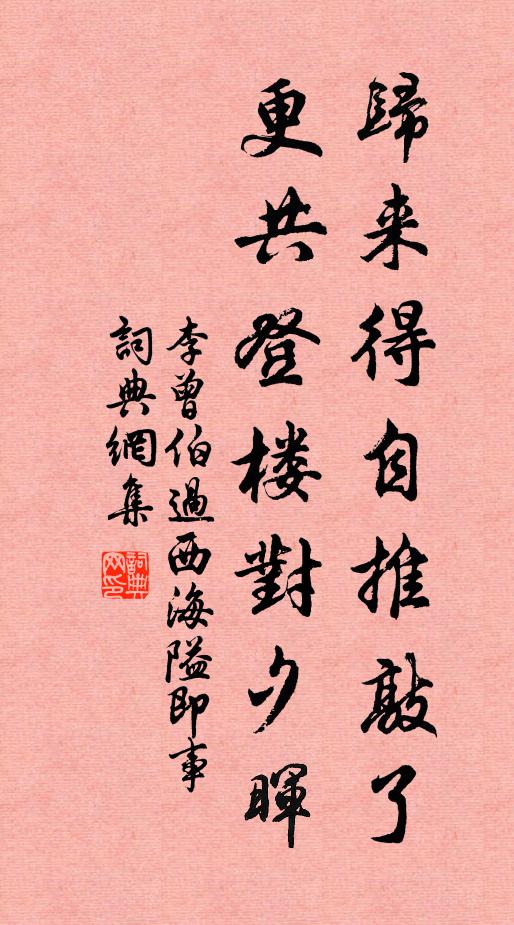 歸来得自推敲了
更共登楼對夕暉
李曾伯過西海隘即事
詞典網集
詞典网印